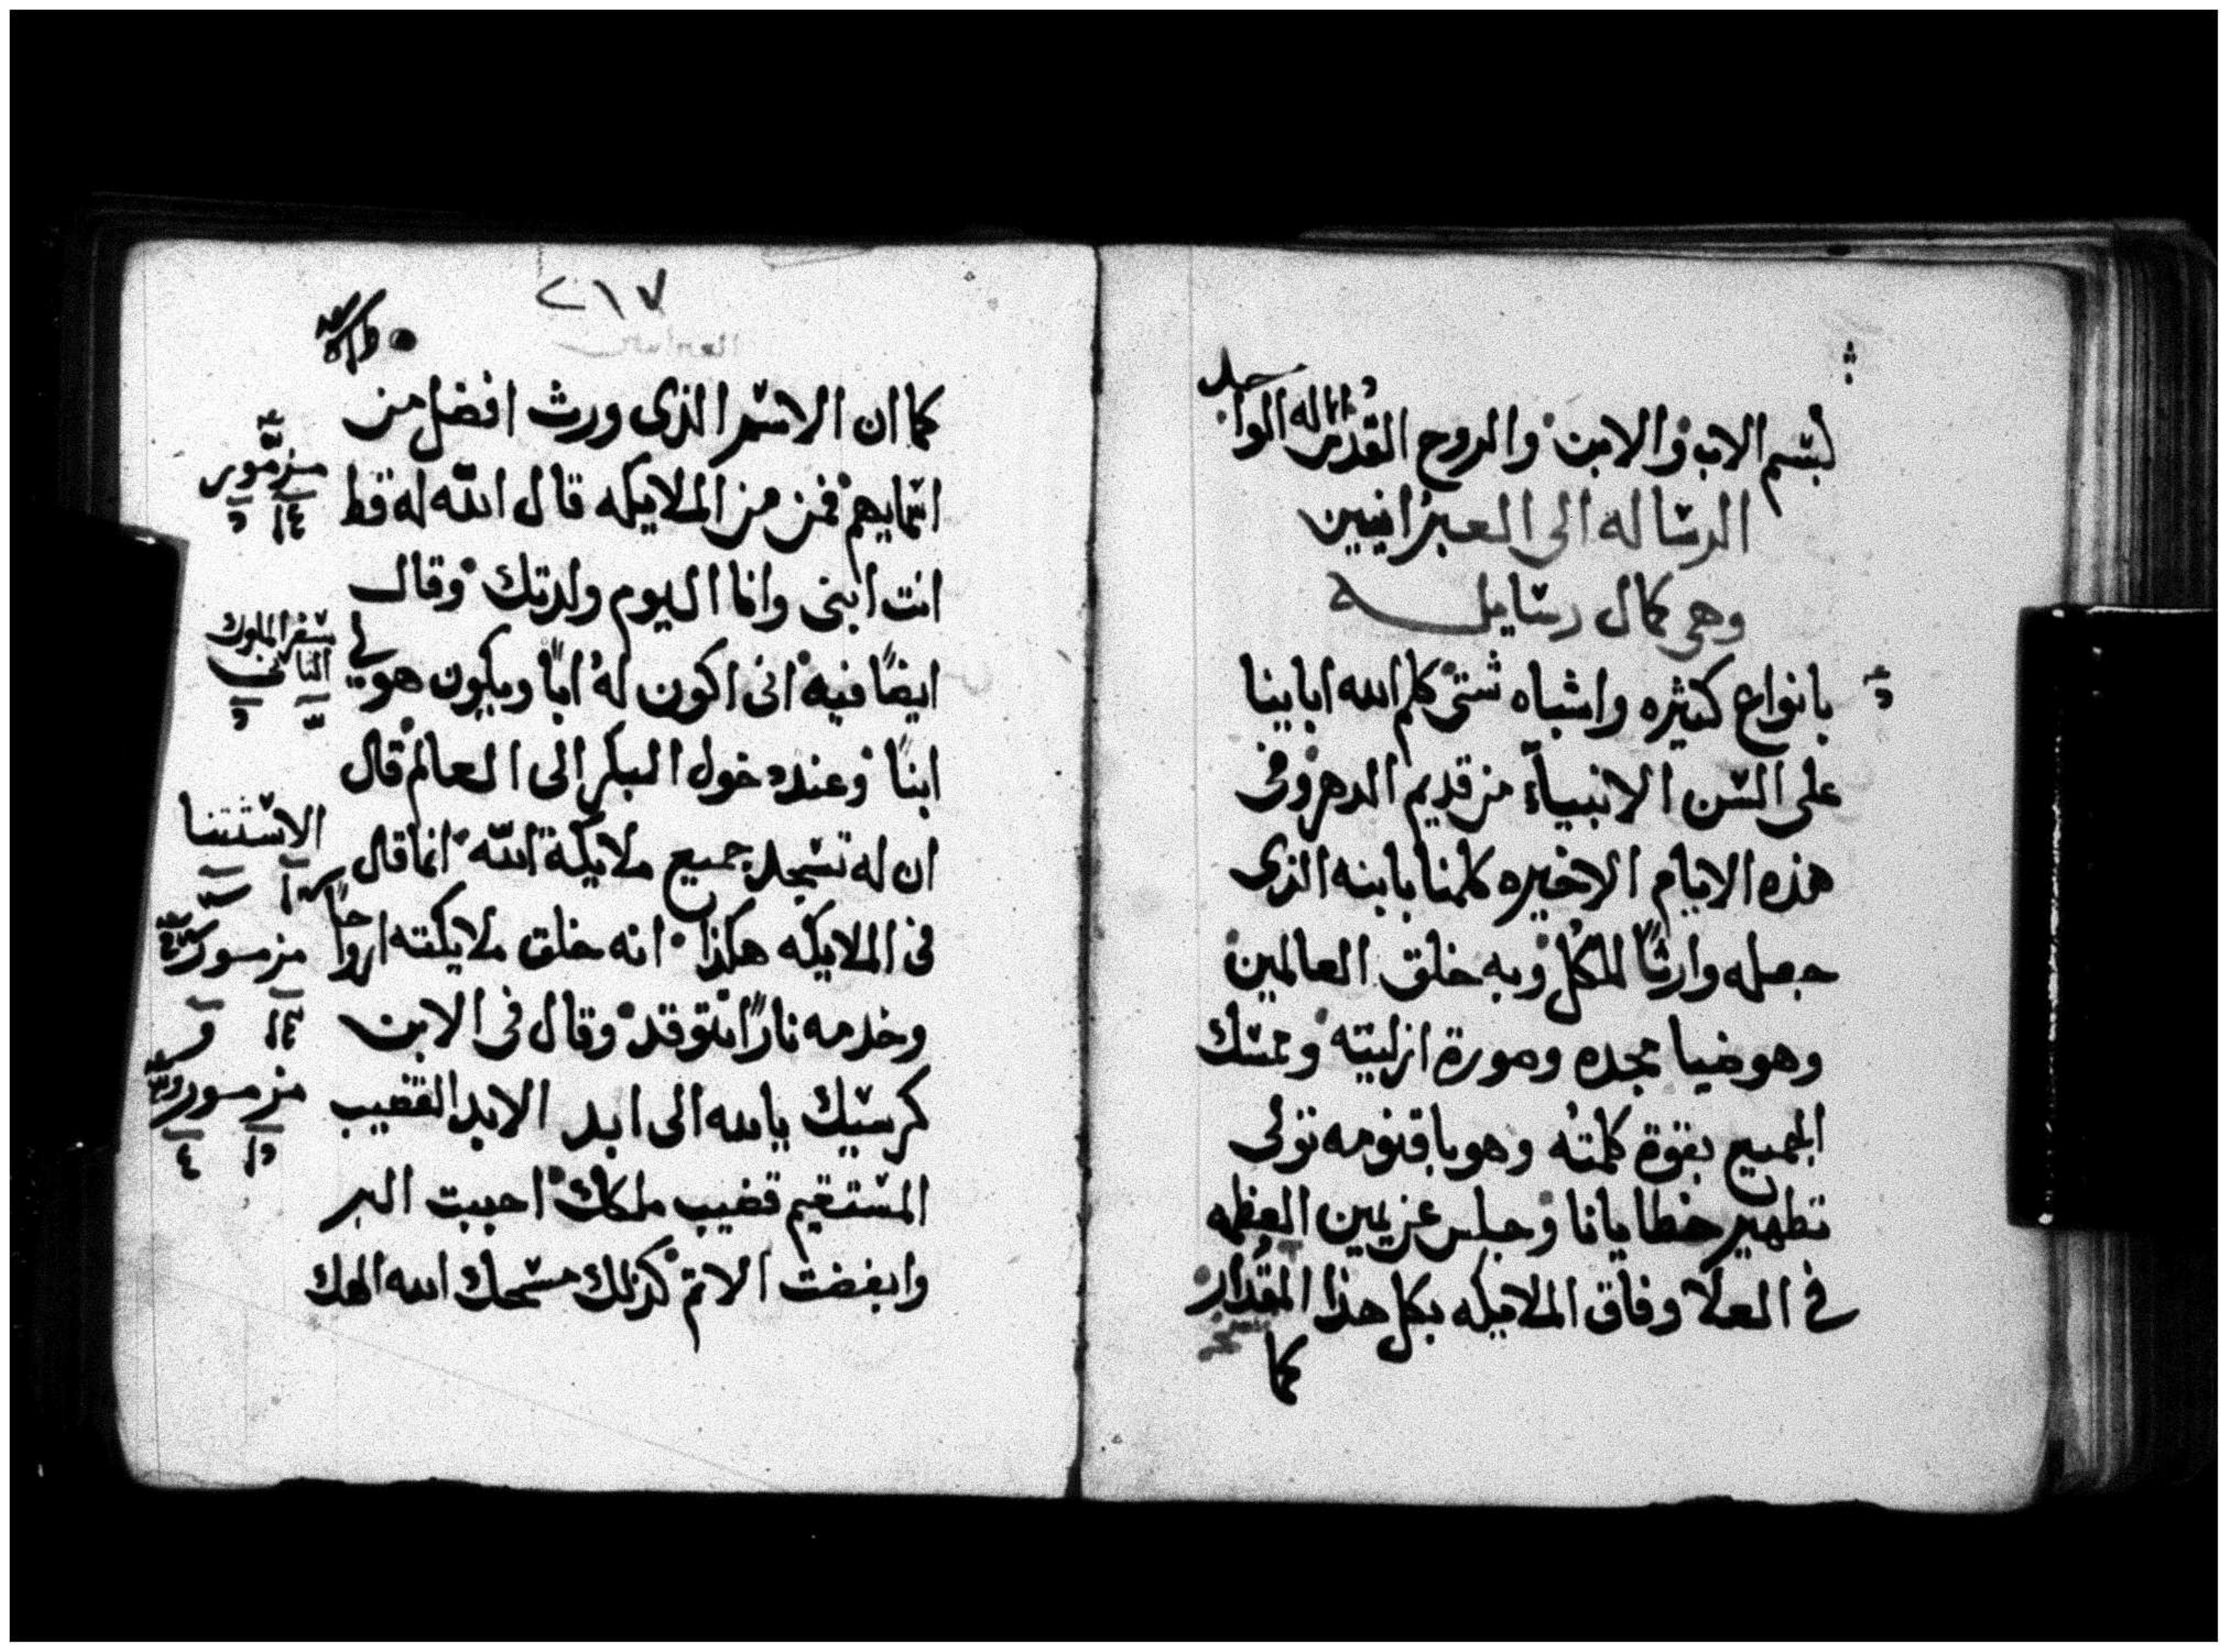 بسم الاب والابن والروح القدس الاله الواحد
الرساله الى العبرانيين
وهي كمال رسايله
بانواع كثيره واشباه شتى كلم الله ابابينا
على السن الانبياء من قديم الدهر وفى
هذه الايام الاخيره كلمنا بابنه الذى
جعله وارثًا للكل وبه خلق العالمين
وهو ضيا مجده وصورة ازليته وممسك
الجميع بقوة كلمته وهو باقنومه تولى
تطهير خطايانا وجلس عن يمين العظمه
في العلا وفاق الملايكه بكل هذا المقدار
كما
٢١٧
كما ان الاسم الذى ورث افضل من
اسمايهم فمن من الملايكه قال الله له قط
انت ابنى وانا اليوم ولدتك وقال
ايضًا فيه انى اكون له ابًا ويكون هو لي
ابنًا وعند دخول البكر الى العالم قال
ان له تسجد جميع ملايكة الله انما قال
فى الملايكه هكذا انه خلق ملايكته ارواحًا
وخدمه نارًا تتوقد وقال فى الابن
كرسيك يا الله الى ابد الابد القضيب
المستقيم قضيب ملكك احببت البر
وابغضت الاثم كذلك مسحك الله الهك
مزمور
سفر الملوك
الثانى
الاستثنا
مزمور
مزمور